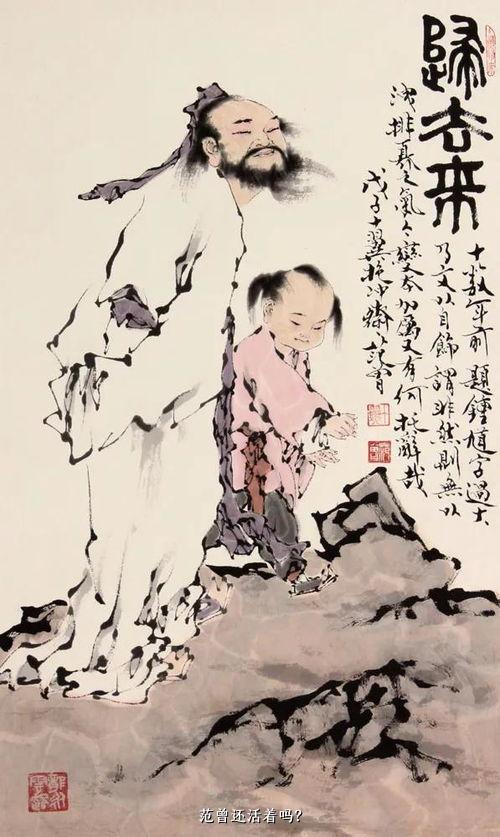 歸去來
十数年前題鍾馗字過大
乃文以自飾謂非然則無以
洩排奡之氣今變本加厲又有何托辭哉
戊子十翼於沖齋范曾
范曾还活着吗?